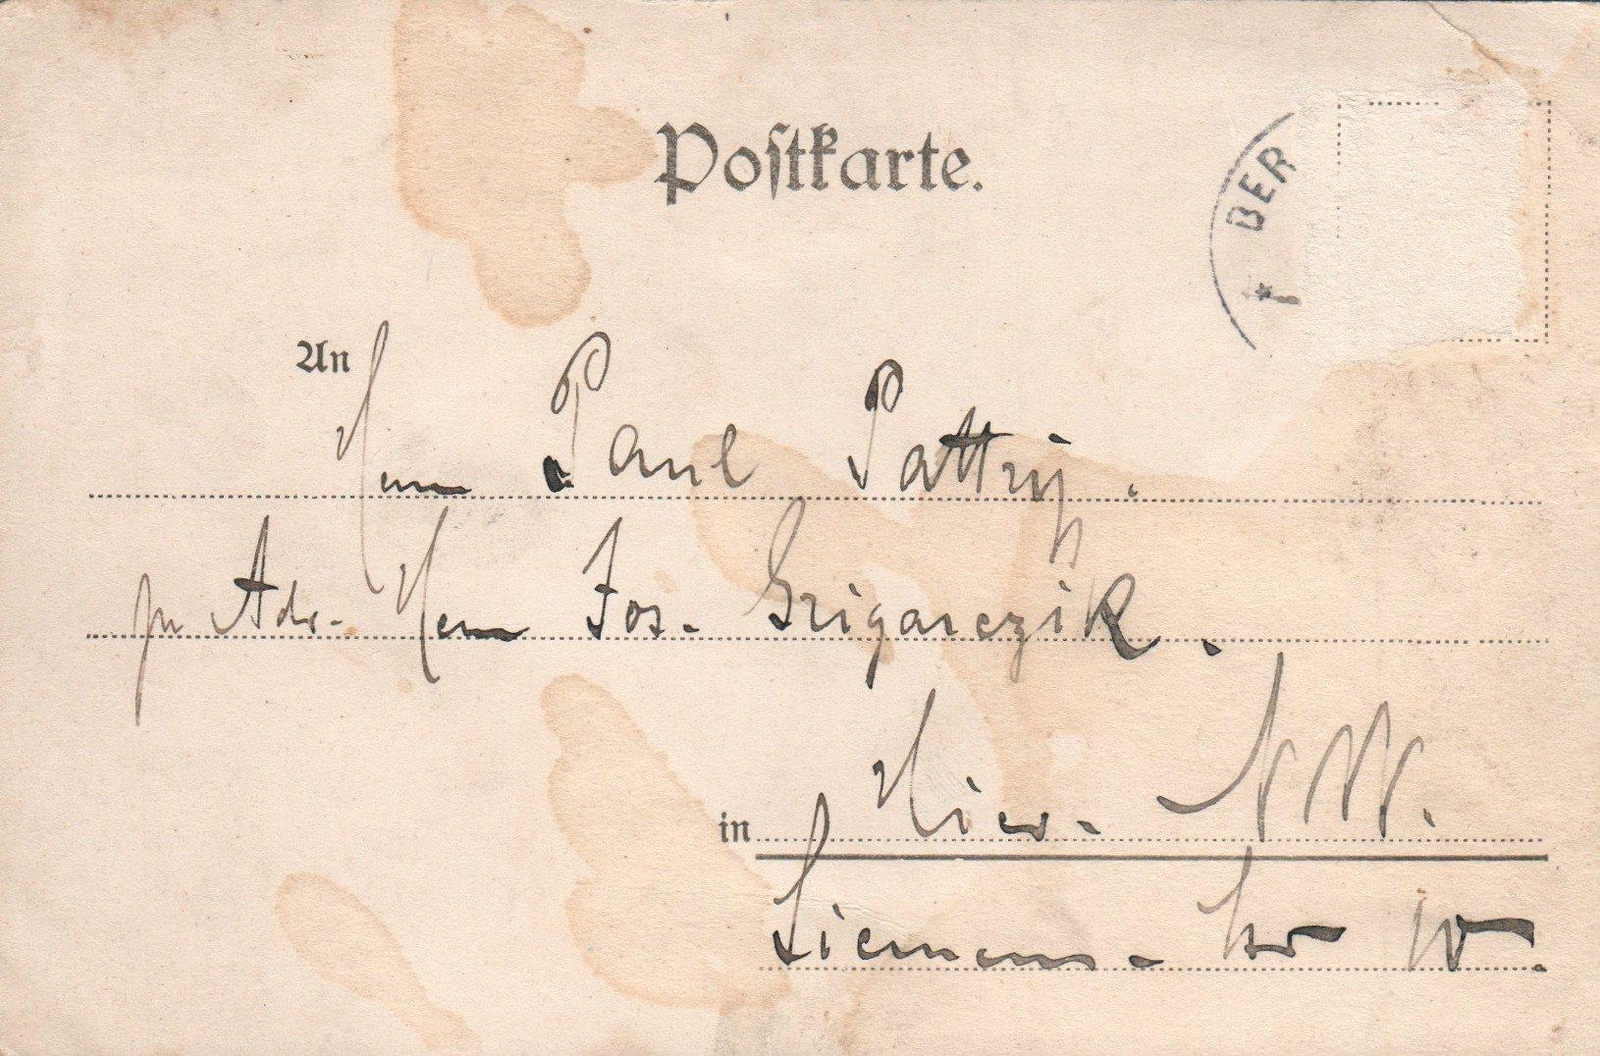 Postkarte.
BER
An
Herrn Paul Pattry.
pr Adr. Herrn Jos. Grigarczik.
in Hier. NW.
Siemens-str 10.